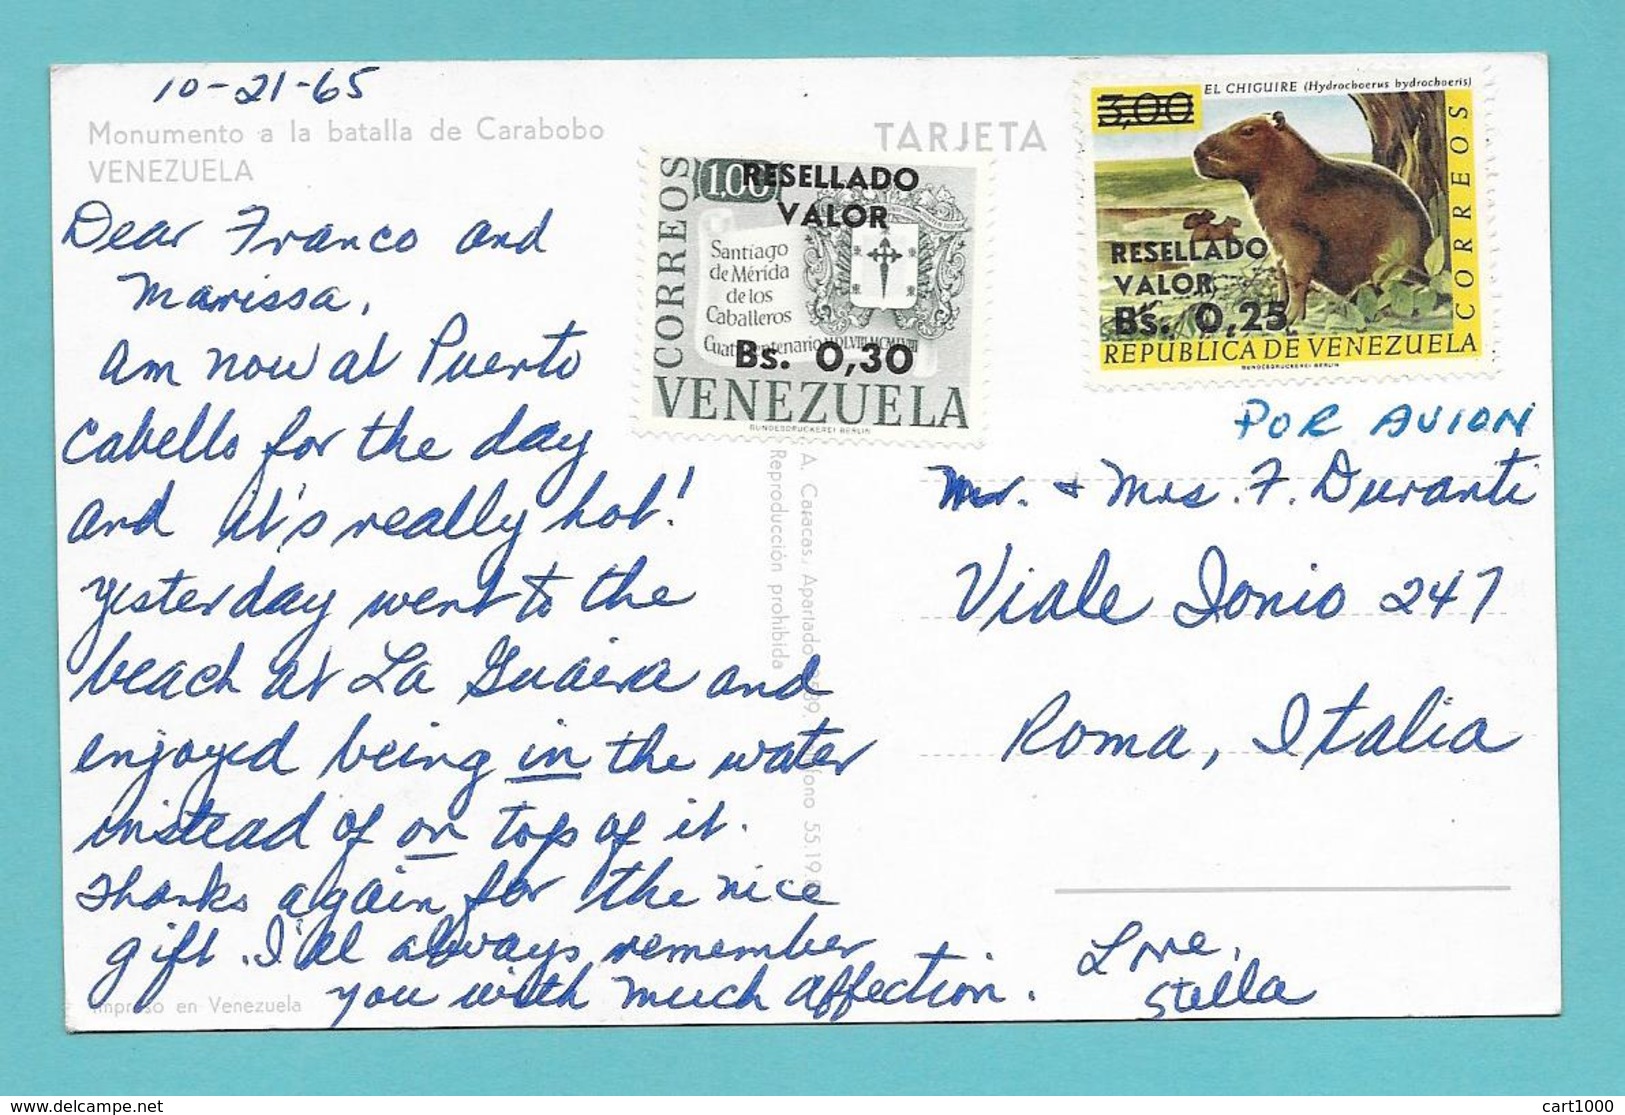 10-21-65
Monumento a la batalla de Carabobo
VENEZUELA
Dear Franco and
Marissa,
Am now at Puerto
Cabello for the day
and it's really hot!
Yesterday went to the
beach at La Guaira and
enjoyed being in the water
instead of on top of it.
Thanks again for the nice
gift. I'll always remember
you with much affection.
Impreso en Venezuela
TARJETA
CORREOS
1.00
RESELLADO
VALOR
Santiago
de Mérida
de los
Caballeros
Cuatricentenario MDLVIII MCMLVIII
Bs. 0,30
VENEZUELA
BUNDESDRUCKEREI BERLIN
3,00
EL CHIGUIRE (Hydrochoerus hydrochoeris)
CORREOS
RESELLADO
VALOR
Bs. 0,25
REPUBLICA DE VENEZUELA
BUNDESDRUCKEREI BERLIN
A. Caracas, Apartado
Reproducción prohibida
POR AVION
Mr. & Mrs. F. Duranti
Viale Ionio 247
Roma, Italia
Love,
Stella
https://www.delcampe.net
cart1000